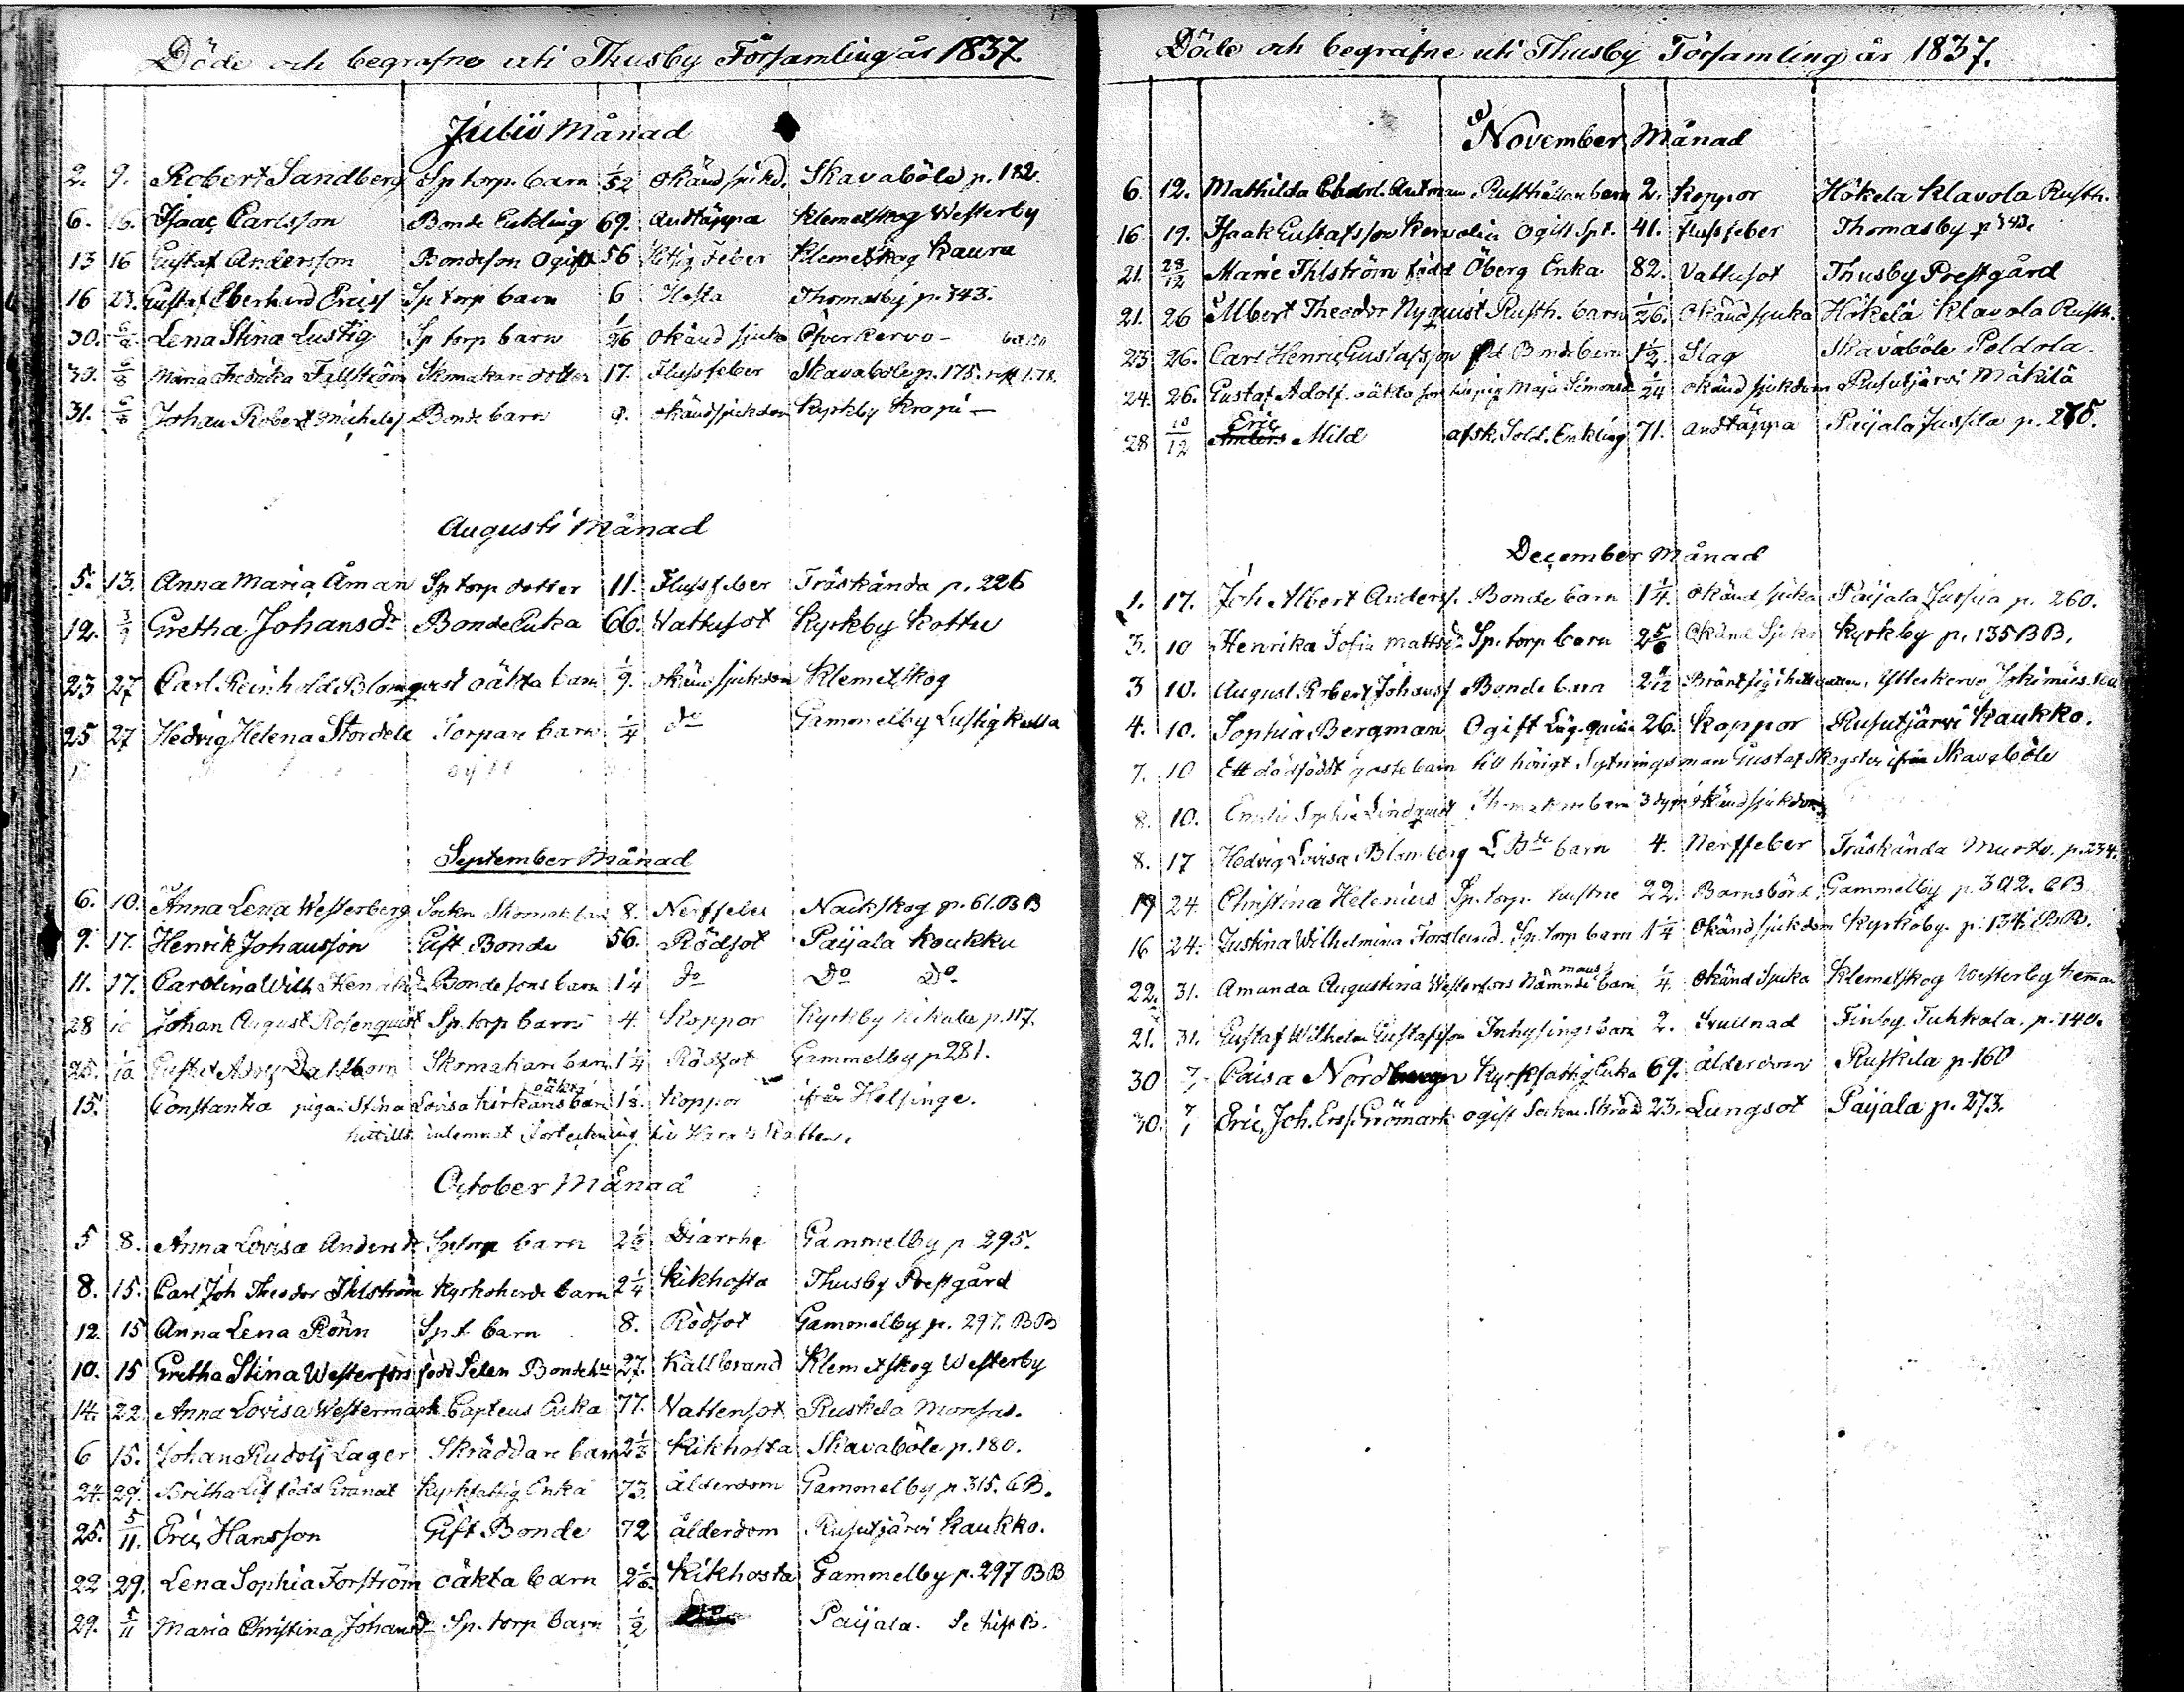 Döde och begrafne uti Thusby Församling år 1837.
Julii Månad
2. 9. Robert Sandberg Sp torp. barn 1/52 okänd sjukd. Skavaböle p. 182
6. 16. Isaac Carlsson Bonde Enkling 69. Andtäppa Klemetskog Westerby
13 16 Gustaf Andersson Bondeson Ogift 56 Hitsig Feber Klemetskog Kaura
16 23. Gustaf Eberhard Ericss Sp torp barn 6 Hosta Thomasby p. 343.
30. 6/8 Lena Stina Lustig Sp torp barn 1/26 okänd sjuka Öfverkervo -
30. 6/8 Maria Fredrika Fellström Skomakare dotter 17. Flussfeber Skavaböle p. 175.
31. 6/8 Johan Robert Michelss Bonde barn okänd sjukdom Kyrkby Kropi -
Augusti Månad
5. 13. Anna Maria Åman Sp torp dotter 11. Flussfeber Träskända p. 226
12. 3/9 Gretha Johansdr Bonde Enka 66. Vattusot Kyrkby Kottu
23 27 Carl Reinhold Blomqvist oäkta barn 1/9. okänd sjukdom Klemetskog
25 27 Hedvig Helena Stordell Torpare barn 1/4 do Gammelby Lustig
September Månad
6. 10. Anna Lena Westerberg Sockne Skomak barn 8. Nerffeber Nackskog p. 61. BB
9. 17. Henrik Johansson Gift Bonde 56. Rödsot Paijala Koukku
11. 17. Carolina Wilh Henriksdr Bondesons barn 1 1/4 do Do Do
28 Johan August Rosenqvist Sp. torp barn 4. Koppor Kyrkby p. 117.
25. Gustaf Adolf Dahlbom Skomakare barn 1 1/4 Rödsot Gammelby p 281.
15. Constantia pigan Stina Lovisa oäkta barn Koppor ifrån Helsinge.
hittills inlemnat Förteckning
October Månad
5 8. Anna Lovisa Andersdr Sp torp barn Diarrhe Gammelby p 295.
8. 15. Carl Joh Theodor Ihlström Kyrkoherde barn 2 1/4 Kikhosta Thusby Prestgård
12. 15 Anna Lena Rönn Sp. t barn 8. Rödsot Gammelby p. 297. BB
10. 15 Gretha Stina Westerfors född Selen Bonde 27. Kallbrand Klemetskog Westerby
14. 22. Anna Lovisa Westermark Capteus Enka 77. Vattensot Ruskela Monsas.
6 15. Johan Rudolf Lager Skräddare barn Kikhosta Skavaböle p. 180.
24. 29. Britha född Granat Kyrkfattig Enka 73. ålderdom Gammelby p 315. CB.
25. 5/11. Eric Hansson Gift Bonde 72 ålderdom Rusutjärvi Kaukko.
22 29. Lena Sophia Forström oäkta barn Kikhosta Gammelby p. 297 BB
29. 5/11 Maria Christina Johansdr Sp. torp barn 1/2 Paijala.
Döde och begrafne uti Thusby Församling år 1837.
November Månad
6. 12. Mathilda Rusthållare barn 2. Koppor Hökela Klavola Rusth.
16 19. Isaak Gustafsson Ogift Sp. t. 41. Flussfeber Thomasby p 343.
21. 28/12 Marie Ihlström född Öberg Enka 82. Vattusot Thusby Prestgård
21. 26 Albert Theodor Nyquist Rusth. barn 1/26. Okänd sjuka Hökelä Klavola Rusth.
23 26. Carl Henric Gustafsson Bonde barn 1 1/2. Slag Skavaböle Peldola.
24. 26. Gustaf Adolf oäkta son Maja Simonsdr 1/24 okänd sjukdom Rusutjärvi Mäkilä
28 10/12 Anders Eric Mild afsk. Sold. Enkling 71. andtäppa Paijala Jussila p. 275.
December Månad
1. 17. Joh Albert Anderss. Bonde barn 1 1/4. okänd sjuka Paijala Jussila p. 260.
3. 10 Henrika Sofia Mattsdr Sp. torp barn 2 5/6 Okänd Sjuka Kyrkby p. 135 BB.
3 10. August Robert Johanss Bonde barn 2 1/12 Bränt sig i hett vatten. Ytterkervo
4. 10. Sophia Bergman Ogift 26. Koppor Rusutjärvi Kaukko.
7. 10 Ett dödfödt gossebarn till hörigt Sytningsman Gustaf Skogster ifrån Skavaböle
8. 10. Emilie Sophia Lindquist Skomakare barn 3 dygn okänd sjukdom
8. 17 Hedvig Lovisa Blomberg L. Bde barn 4. Nerffeber Träskända p. 234.
19 24. Christina Helenius Sp. torp. hustru 22. Barnsbörd. Gammelby p 302. CB
16 24. Justina Wilhelmina Forslund. Sp. torp barn 1 1/4 Okänd sjukdom Kyrkoby p. 134. BB.
22. 31. Amanda Augustina Westerfors Nämndemans barn 1/4. okänd Sjuka Klemetskog Westerby heman
21. 31. Gustaf Wilhelm Gustafsson Inhysings barn 2. Svullnad Finby Tuhkala. p. 140.
30 7/1 Caisa Nordberg Kyrkfattig Enka 69. ålderdom Ruskila p. 160
30. 7/1 Eric Joh. Erss. Grömark ogift Sockne Skräd 23. Lungsot Paijala p. 273.